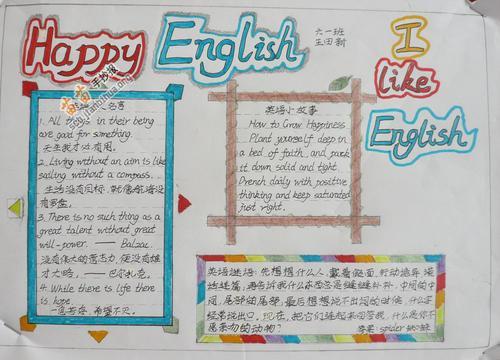 Happy English
六一班
I
like
English
英语 名言
1. All things in their being
are good for something.
天生我才必有用。
2. Living without an aim is like
sailing without a compass.
生活没有目标，就像航海没
有罗盘。
3. There is no such thing as a
great talent without great
will-power. —— Balzac.
没有伟大的意志力，便没有雄
才大略。—— 巴尔扎克。
4. While there is life there
is hope
一息若存，希望不灭。
英语小故事
How to Grow Happiness
Plant yourself deep in
a bed of faith, and pack
it down solid and tight.
Drench daily with positive
thinking and keep saturated
just right.
英语谜语: 先想想什么人，戴着假面，行动诡异
谎话连篇，再告诉我什么东西总是缝缝补补，中间的中
间，尾部的尾部，最后想想说不出词的时候，什么字
经常说出口，现在，把它们连起来回答我，什么是你不
愿亲吻的动物?
答案: spider 蜘蛛